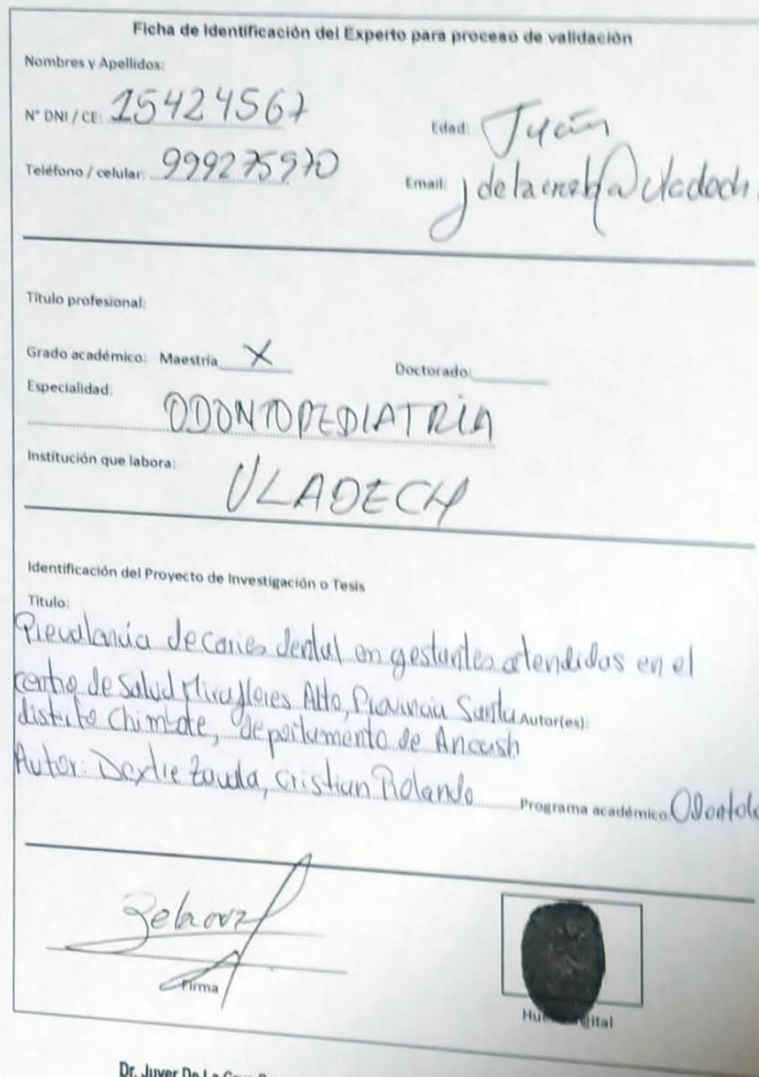 Ficha de Identificación del Experto para proceso de validación
Nombres y Apellidos:
N° DNI / CE: 15424567 Edad:
Teléfono / celular: 999275970 Email:
Título profesional:
Grado académico: Maestría X Doctorado:
Especialidad:
ODONTOPEDIATRIA
Institución que labora:
ULADECH
Identificación del Proyecto de Investigación o Tesis
Título:
Prevalencia de caries dental en gestantes atendidas en el
centro de Salud Miraflores Alto, Provincia Santa Autor(es):
distrito Chimbote, departamento de Ancash
Autor: Cristian Rolando Programa académico: Odontolo
Firma
Dr. Juver De La